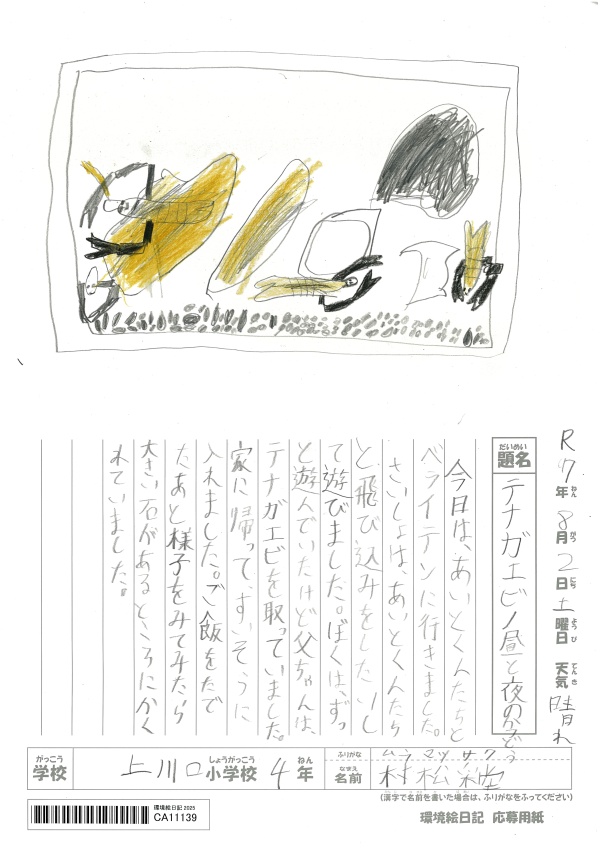 R7年8月2日土曜日 天気晴れ
ねん がつ にち ようび てんき
だいめい
題名 テナガエビノ昼と夜の
今日は、あいとくんたちと
ベライテンに行きました。
さいしょは、あいとくんたち
と飛び込みをしたりし
て遊びました。ぼくは、ずっ
と遊んでいたけど父ちゃんは、
テナガエビを取っていました。
家に帰って、すいそうに
入れました。ご飯をたで
たあと様子をみてみたら
大きい石があるところにかく
れていました。
がっこう しょうがっこう ねん ふりがな ムラマツ サク
学校 上川口小学校 4年
なまえ
名前 村松
(漢字で名前を書いた場合は、ふりがなをふってください)
環境絵日記 2025
CA11139
環境絵日記 応募用紙